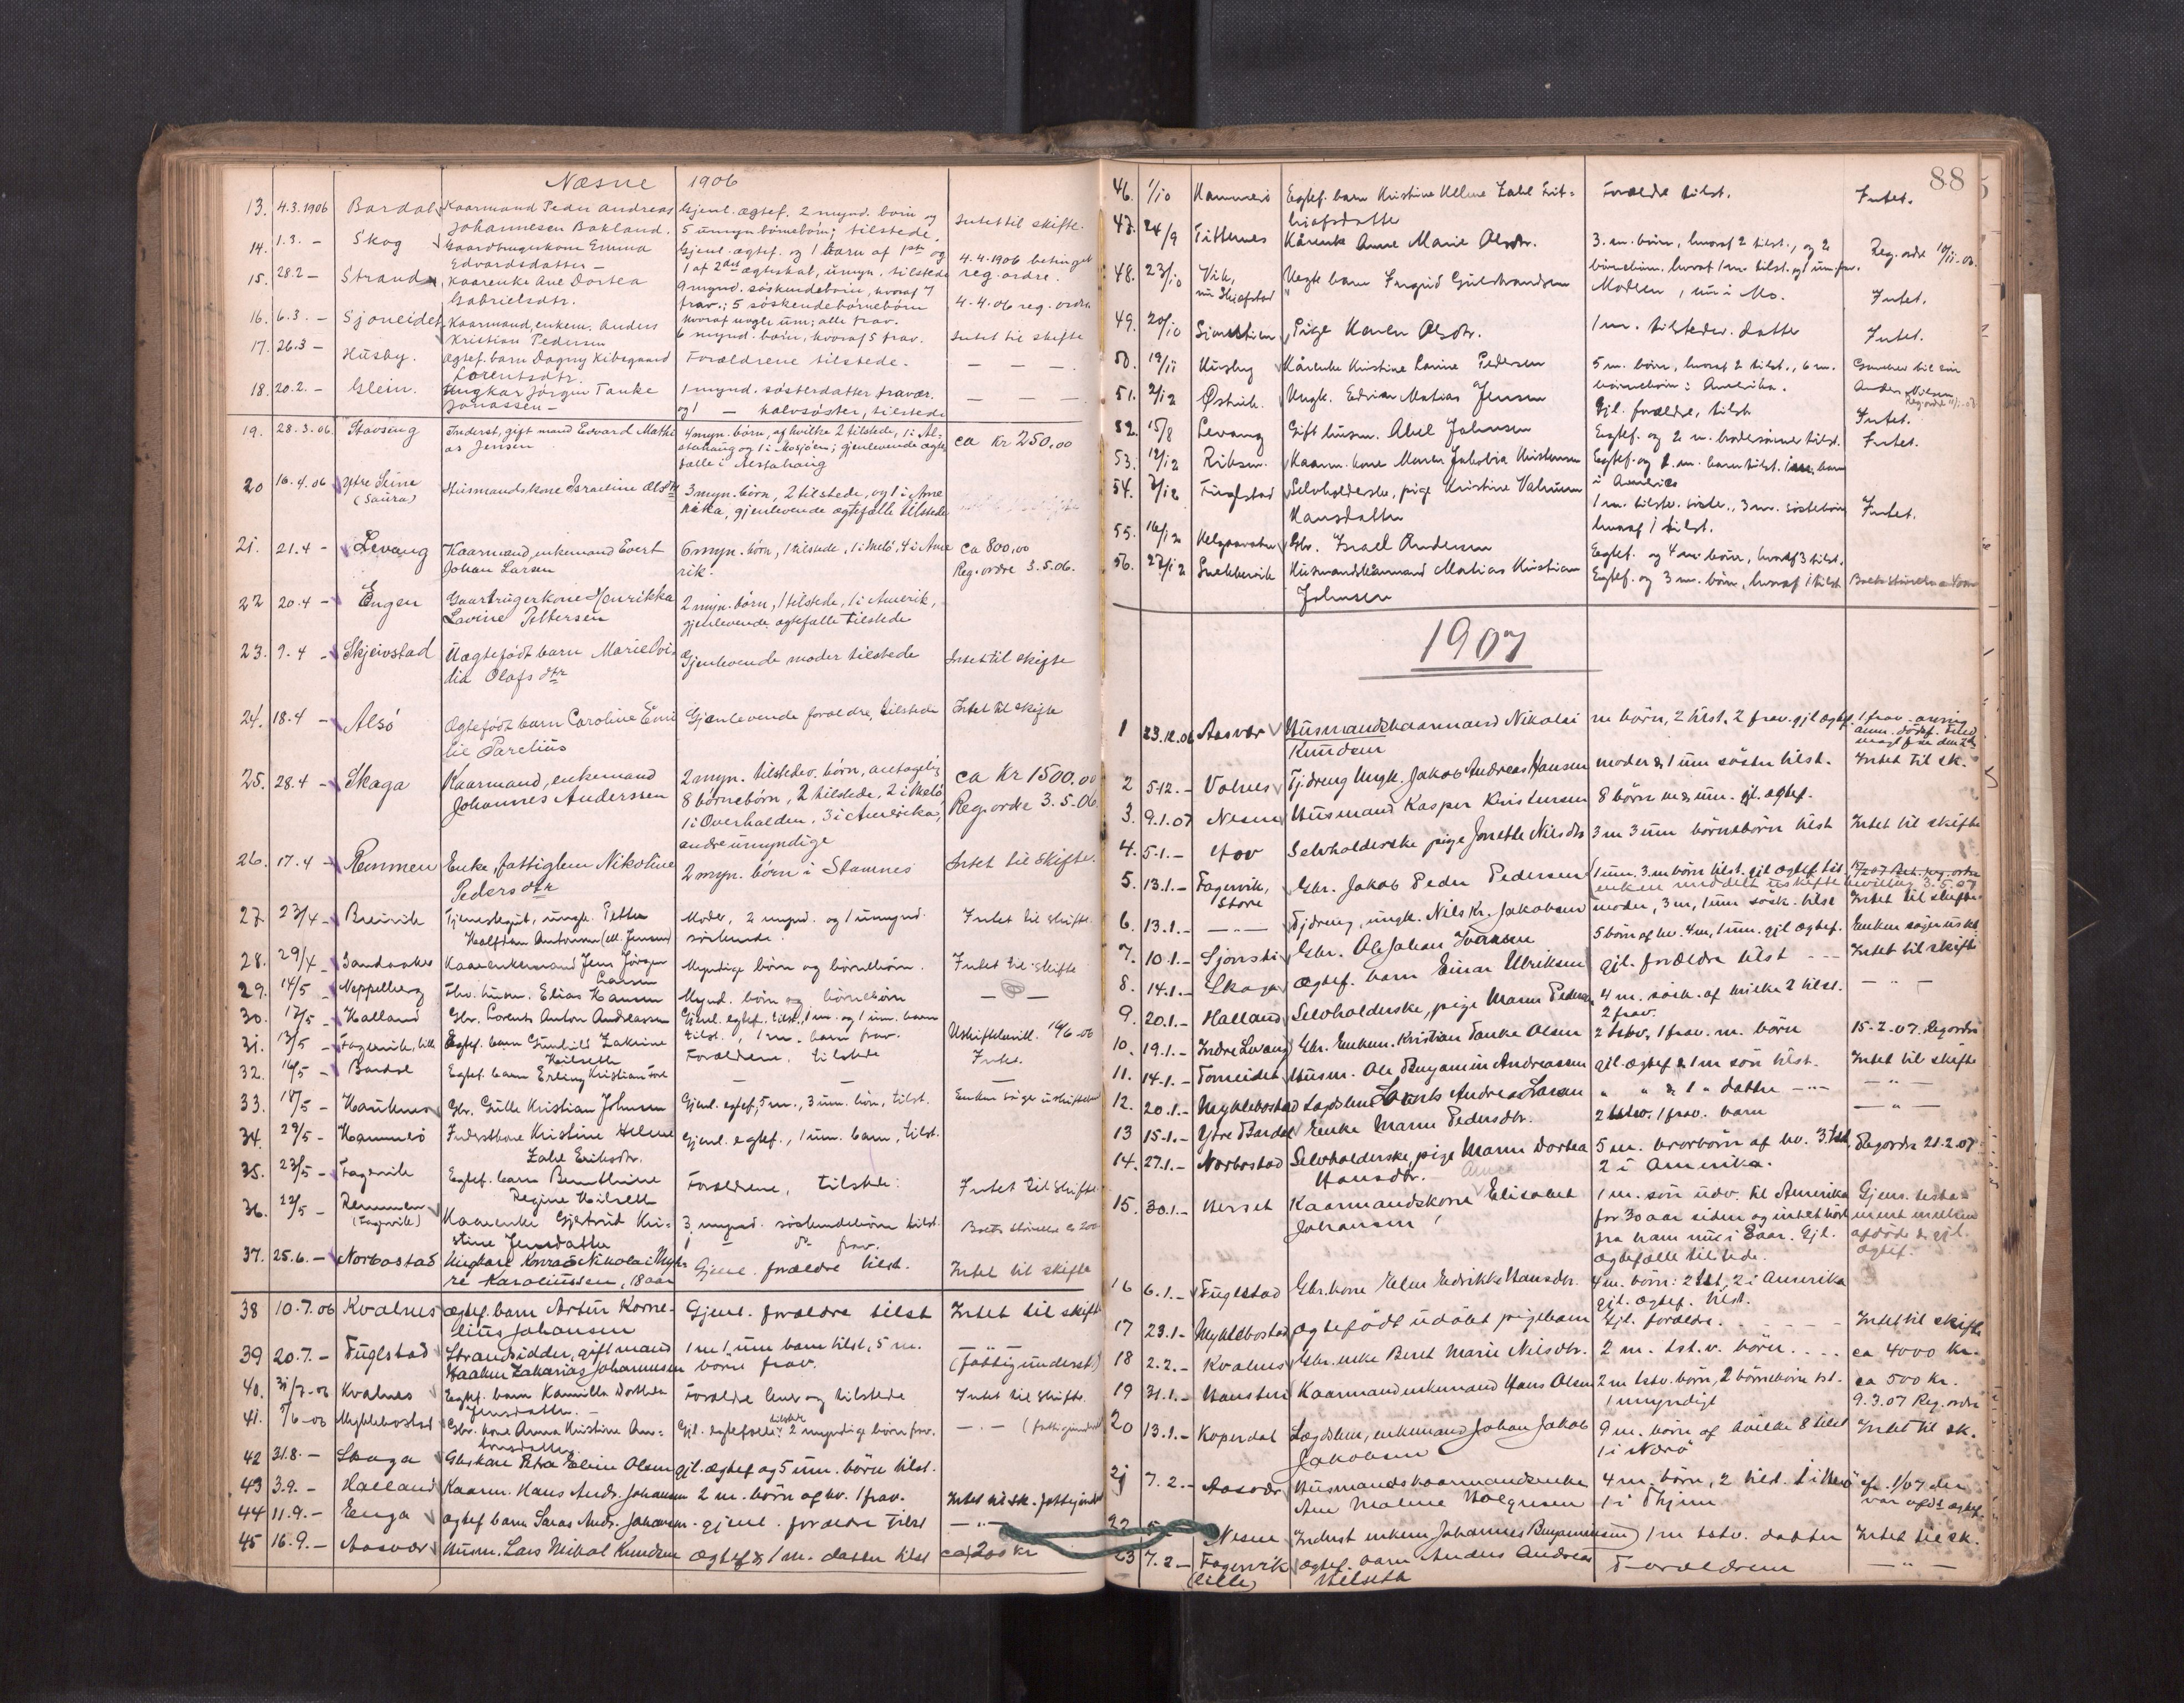 Næsne 1906
13. 4.3.1906 Bardal Kaarmand Peder Andreas Gjenl. ægtef. 2 mynd. børn og
Johannesen Bakland. 5 umyn. børnebørn; tilstede. Intet til skifte.
14. 1.3. – Skog Gaardbrugerkone Emma Gjenl. ægtef. og 1 barn af 1ste og
Edvardsdatter – 1 af 2det ægteskab, umyn, tilstede 4.4.1906 betinget
reg. ordre.
15. 28.2 – Strand Kaarenke Ane Dortea 9 mynd. söskendebörn, hvoraf 7
Gabrielsdtr. frav.; 5 söskendebörnebörn 4.4.06 reg. ordre
hvoraf nogle um; alle frav.
16. 6.3. – Sjoneidet Kaarmand, enkem. Anders 6 mynd. börn, hvoraf 5 frav. Intet til skifte
Kristian Pedersen
17. 26.3 – Husby. Ægtef. barn Dagny Kibsgaard Forældrene tilstede. – – –
Lorentsdtr.
18. 20.2. – Glein. Ungkar Jörgen Tanke 1 mynd. sösterdatter fravær. – – –
Jonassen – og 1 – halvsöster, tilstede
19. 28.3.06 Stavseng Inderst, gift mand Edvard Mathi 4 myn. börn, af hvilke 2 tilstede, 1 i Al-
as Jensen stahaug og 1 i Mosjöen; gjenlevende ægte ca Kr 250,00
fælle i Alstahaug
20 16.4.06 Ytre Seine Husmandskone Israeline Olsdtr 3 myn. börn, 2 tilstede, og 1 i Ame
(Saura) rika, gjenlevende ægtefælle tilstede
21. 21.4 – Levang Kaarmand, enkemand Evert 6 myn. börn, 1 tilstede, 1 i Melö, 4 i Ame ca 800,00
Johan Larsen rik. Reg. ordre 3.5.06.
22 20.4 – Engen Gaardbrugerkone Henrikka 2 myn. börn, 1 tilstede, 1 i Amerik,
Lovine Pettersen gjenlevende ægtefælle tilstede
23. 9.4 – Skjeivstad Uægtefödt barn Marie Ovi Gjenlevende moder tilstede Intet til skifte
dia Olafsdtr
24. 18.4 – Alsö Ægtefödt barn Caroline Emi Gjenlevende foreldre, tilstede Intet til skifte
lie Parelius
25. 28.4 – Skaga Kaarmand, enkemand 2 myn. tilstedev. börn, antagelig ca Kr 1500,00
Johannes Anderssen 8 börnebörn, 2 tilstede, 2 i Melö Reg. ordre 3.5.06.
1 i Overhalden, 3 i Amerika,
andre umyndige
26. 17.4 – Remmen Enke, fattiglem Nikoline 2 myn. börn i Stamnes Intet til skifte.
Pedersdtr
27. 23/4 – Breivik Tjenestegut, ungk. Petter Moder, 2 mynd. og 1 umynd. Intet til skifte
Halfdan Antonsen (ell. Jensen) söskende.
28. 29/4 – Sandaaker Kaarenkemand Jens Jörgen Myndige börn og börnebörn. Intet til skifte
Larsen
29. 14/5 – Neppelberg Fhv. husm. Elias Hansen Mynd. börn og börnebörn – –
30. 12/5 – Halland Gbr. Lorents Anton Andreassen Gjenl. egtef. tilst., 1 m. og 1 um. barn
tilst., 1 m. barn frav. Uskiftebevill. 16/6-06
31. 13/5 – Fagervik, lille Egtef. barn Gunhild Zakrine Forældrene, tilstede Intet.
Hilseth
32. 16/5 – Bardal Egtef. barn Erling Kristian – –
33. 18/5 – Haukenes Gbr. Gulle Kristian Johnsen Gjenl. egtef, 5 m., 3 um. börn, tilst.
34. 29/5 – Hammerö Inderstkone Kristine Helene Gjenl. egtef., 1 um. barn, tilst.
Zahl Eriksdtr.
35. 23/5 – Fagervik Egtef. barn Bernthine Forældrene, tilstede. Intet til skifte
Regine Hilseth
36. 22/5 – Remmen Kaarenke Gjertrud Kri- 3 mynd. söskendebörn tilst. Boets störrelse ca 200
(Fagervik) stine Jensdatter 1 – do frav.
37. 25.6. – Norbostad Ungkarl Konrad Nikolai Myh- Gjenl. forældre tilst. Intet til skifte
re Karoliussen, 18 aar
38 10.7.06 Kvalnes Ægtef. barn Artur Korne- Gjenl. forældre tilst Intet til skifte
lius Johansen
39 20.7. – Fuglstad Strandsidder, gift mand 1 m 1 um barn tilst, 5 m. – –
Haaken Zakarias Johannesen börn frav. (fattigunderst.)
40. 31/7-06 Kvalnes Egtef. barn Kamilla Dorthea Foreldre lever og tilstede Intet til skifte.
Jensdatter. –
41. 5/6-06 Myklebostad Gbr. kone Anna Kristine An- Gjl. egtefælle tilstede; 2 myndige börn frav. – . –
tonsdatter.
42 31.8. – Skaga Gbskone Petra Eline Olsen gjl. ægtef og 5 um. börn tilst.
43 3.9. – Halland Kaarm. Hans Andr. Johansen 2 m. börn og hv. 1 frav. Intet til sk. fattigunderst
44 11.9. – Enga Ægtef barn Saras Andr. Johansen gjenl. forældre tilst – „ –
45 16.9. – Aasvær Husm. Lars Mikal Knudsen Ægtef & 1 m. datter tilst ca 200 kr
88
46. 1/10 Hammerö Egtef. barn Kristine Helene Zahl Frit- Forældre tilst. Intet.
hjofsdatter
47. 24/9 Fitternes Kårenke Anne Marie Olsdtr. 3. m. börn, hvoraf 2 tilst., og 2 Reg. ordre 10/11-06.
börnebörn. hvoraf 1 m. tilst. og 1 um frav.
48. 23/10 Vik, Uegte barn Ingrid Gulbrandsen Moderen, um i Mo. Intet.
49. 20/10 Sjonstien Pige Karen Olsdtr. 1 m. tilstedev. datter Intet.
50. 19/11 Husby Kårenke Kristine Lovine Pedersen 5 m. börn, hvoraf 2 tilst., 6 m.
börnebörn i Amerika. Anders Nilsen
51. 2/12 Østvik. Ungk. Edvin Matias Jensen Gjl. forældre, tilst Intet.
52. 15/8 Levang Gift husm. Abel Johnsen Egtef. og 2 m. brodersönner tilst. Intet.
53. 12/12 Kaarm. kone Maren Jakobia Kristensen Egtef. og 1 m. barn tilst. 1 m. barn
i Amerika
54. 7/12 Fuglstad Selvholderske, pige Kristine Valnum 1 m. tilstev. söster., 3 m. söstebörn Intet.
Hansdatter hvoraf 1 tilst.
55. 16/12 Gbr. Israel Andersen Egtef. og 4 m. börn, hvoraf 3 tilst.
56. 27/12 Husmandskårmand Matias Kristian Egtef. og 3 m. börn, hvoraf 1 tilst
Johnsen
1907
1 23.12.06 Aasvær Husmandskaarmand Nikolai m börn, 2 tilst, 2 frav. gjl ægtef.
Knudsen
2 5.12. – Valnes Tj.dreng Ungk. Jakob Andreas Hansen moder & 1 um söster tilst. Intet til sk.
3. 9.1.07 Nesna Husmand Kasper Kristensen 8 börn m & um. gjl. ægtef.
4. 5.1. – Hov Selvholderske pige Jonette Nilsdtr 3 m 3 um börnebörn tilst Intet til skifte
5. 13.1. – Fagervik, Gbr. Jakob Peder Pedersen 1 um. 3. m börn tilst. gjl ægtef. tilst
Store enken meddelt uskiftebevilling 3.5.07
6. 13.1. – – „ – Tj.dreng, ungk. Nils Kr. Jakobsen moder, 3 m, 1 um sösk. tilst Intet til skifte
7. 10.1. – Sjönsti Gbr. Ole Johan Iversen 5 börn af hv. 4 m, 1 um. gjl ægtef. Enken söger uskt
8. 14.1. – Skaga Ægtef. barn Einar Ulriksen gjl. forældre tilst Intet til skifte
9. 20.1. – Halland Selvholderske, pige Maren Pedersen 4 m. sösk. af hvilke 2 tilst. – „ –
2 frav.
10. 19.1. – Indre Levang Gbr. Enkem. Kristian Tanke Olsen 2 tstv, 1 frav. m. börn 15.2.07. Regordre
11. 14.1. – Tomeidet Husm. Ole Benjamin Andreassen gjl. ægtef & 1 m sön tilst. Intet til skifte
12. 20.1. – Myklebostad Lægdslem Lorents Andreas Larsen „ „ & 1 „ datter – „ – – „ –
13 15.1. – Ytre Bardal Enke Maren Pedersdtr. 2 tstv. 1 frav. barn – „ –
14. 27.1. – Norbostad Selvholderske, pige Maren Dortea 5 m. brorbörn af hv. 3. tst Regordre 21.2.07
Hansdtr. 2 i Amerika.
15. 30.1. – Herset Kaarmandskone Elisabet 1 m. sön udv. til Amerika Gjens. testa-
Johansen for 30 aar siden og intet hört ment mellem
fra ham nu i 5 aar. Gjl. afdöde & gjl.
ægtefælle tilstede. ægtef.
16 6.1. – Fuglstad Gbr.kone Elen Fredrikke Hansdtr. 4 m. börn: 2 tst, 2 i Amerika
gjl. ægtef. tilst.
17 23.1 – Myklebostad ægtefödt udöbt pigebarn Gjl. forældre. Intet til skifte
18 2.2. – Kvalnes Gbr. enke Beret Marie Nilsdtr. 2 m. tst.v. börn. ca 4000 kr.
19 31.1. – Hansten Kaarmand enkemand Hans Olsen 2 m tstv. börn, 2 börnebörn tst. ca 500 kr.
1 umyndigt 9.3.07 Reg. ordre
20 13.1. – Koperdal Lægdslem, enkemand Johan Jakob 9 m. börn af hvilke 8 tilst Intet til sk.
Jakobsen 1 i Nærö
21 7.2. – Aasvær Husmandskaarmandsenke 4 m. börn, 2 tilst. 1 i Herö cfr. 1/07 der
Ane Malene Holgersen 1 i Thjem var afd. ægtef.
22 Nesna Inderst enkem Johannes Benjaminsen 1 m tstv. datter Intet til sk.
23 7.2 – Fagervik Ægtef. barn Anders Andreas Forældrene – „ –
(lille) Hilseth